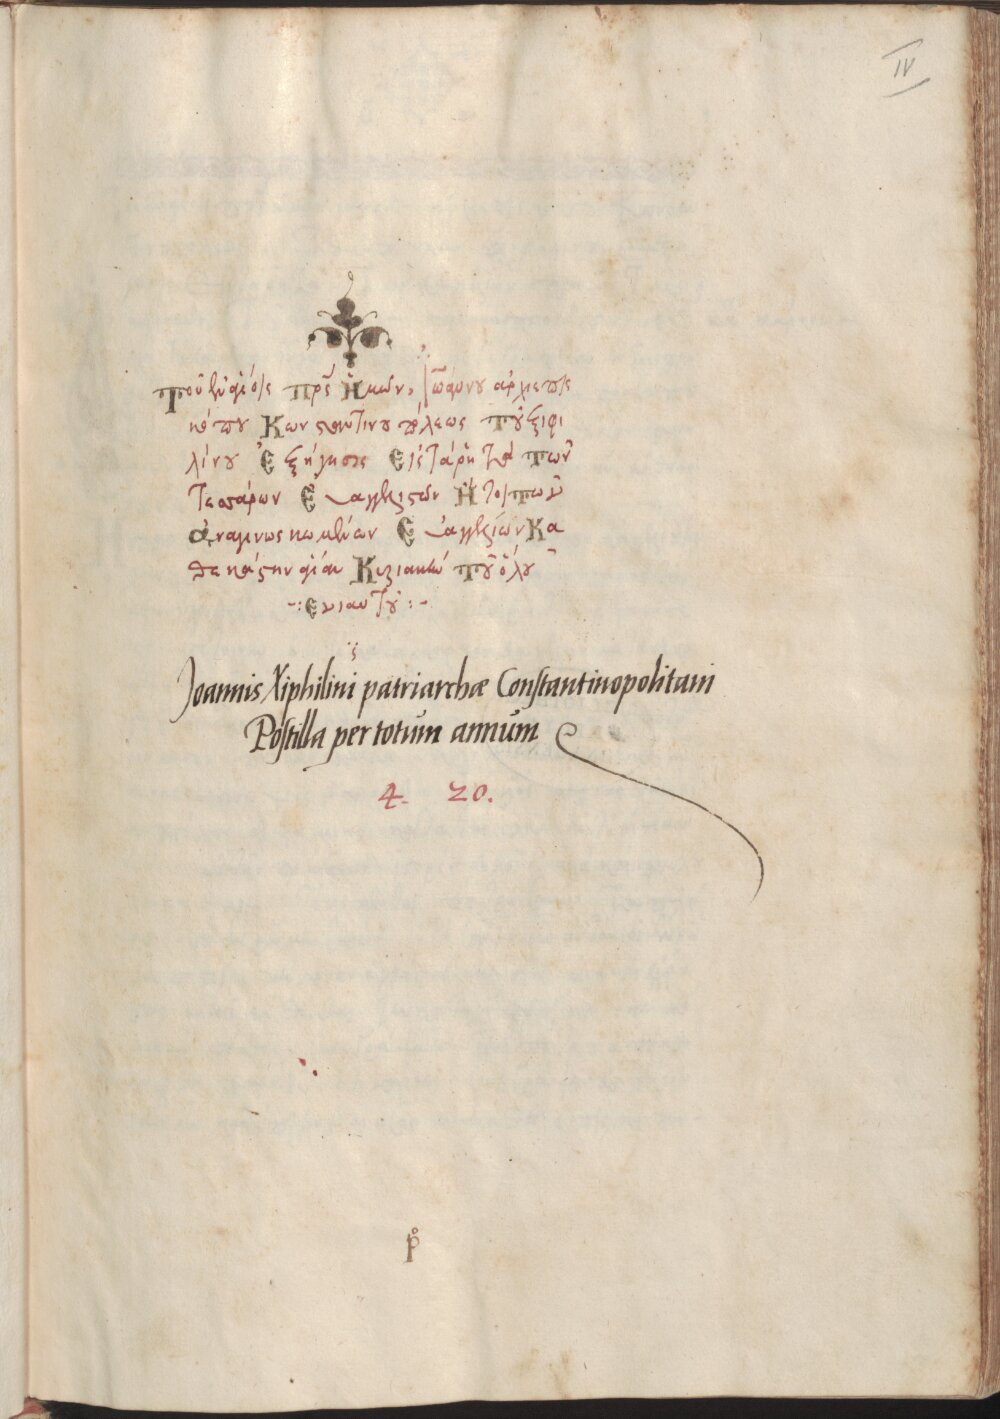 IV
Τοῦ ἐν ἁγίοις πρς Ἡμῶν, Ἰωάννου ἀρχιεπισ
κόπου Κωνσταντίνου πόλεως τοῦ ξιφι
λίνου Ἐξήγησις Εἰς τὰ ῥητὰ τῶν
τεσσάρων Εὐαγγελιστῶν Ἤτοι τῶν
ἀναγινωσκομένων Εὐαγγελίων Κα
θεκάστην ἁγίαν Κυριακὴν τοῦ ὅλου
-: ἐνιαυτοῦ :-
Joannis Xiphilini patriarchæ Constantinopolitani
Postilla per totum annum
4. 20.